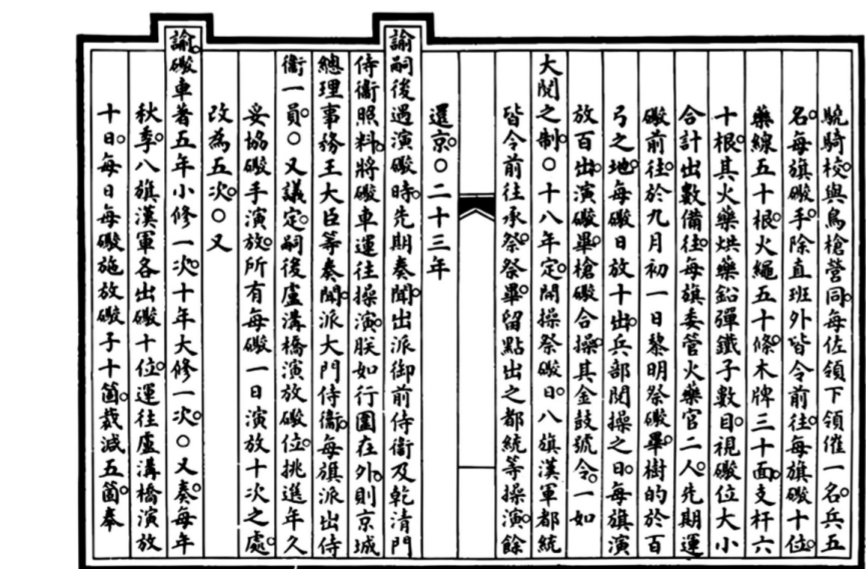 驍騎校與鳥槍營同每佐領下領催一名兵五
名每旗礮手除直班外皆令前往每旗礮十位
藥線五十根火繩五十條木牌三十面支杆六
十根其火藥烘藥鉛彈鐵子數目視礮位大小
合計出數備往每旗委管火藥官二人先期運
礮前往於九月初一日黎明祭礮畢樹的於百
弓之地每礮日放十出兵部閱操之日每旗演
放百出演礮畢槍礮合操其金鼓號令一如
大閱之制○十八年定開操祭礮日八旗漢軍都統
皆令前往承祭祭畢留點出之都統等操演餘
還京○二十三年
諭嗣後遇演礮時先期奏聞出派御前侍衞及乾清門
侍衞照料將礮車運往操演朕如行圍在外則京城
總理事務王大臣等奏聞派大門侍衞每旗派出侍
衞一員○又議定嗣後盧溝橋演放礮位挑進年久
妥協礮手演放所有每礮一日演放十次之處
改為五次○又
諭礮車著五年小修一次十年大修一次○又奏每年
秋季八旗漢軍各出礮十位運往盧溝橋演放
十日每日每礮施放礮子十箇裁減五箇奉